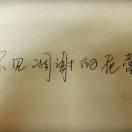 不见凋谢的花蕾